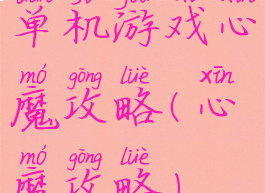 单机游戏心
mó gōng lüè xīn
魔攻略(心
mó gōng lüè
魔攻略)